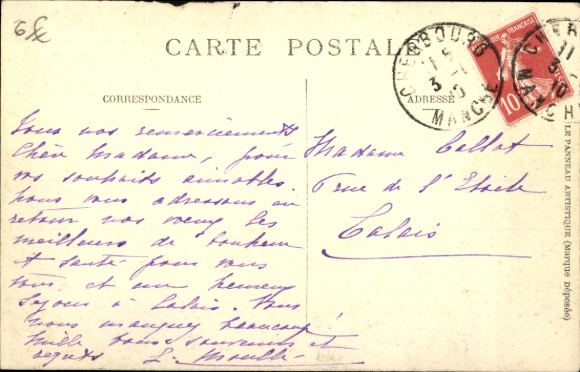 6 fx
CARTE POSTALE
CORRESPONDANCE
ADRESSE
CHERBOURG
MANCHE
10
Tous nos remerciements
Chère Madame, pour
vos souhaits aimables.
Nous vous adressons en
retour nos voeux les
meilleurs de bonheur
et santé pour vous
tous, et un heureux
séjour à Calais. Vous
nous manquez beaucoup !
Mille bons souvenirs et
regrets
Madame Collot
7 rue de l'Etoile
Calais
LE PANNEAU ARTISTIQUE (Marque Déposée)